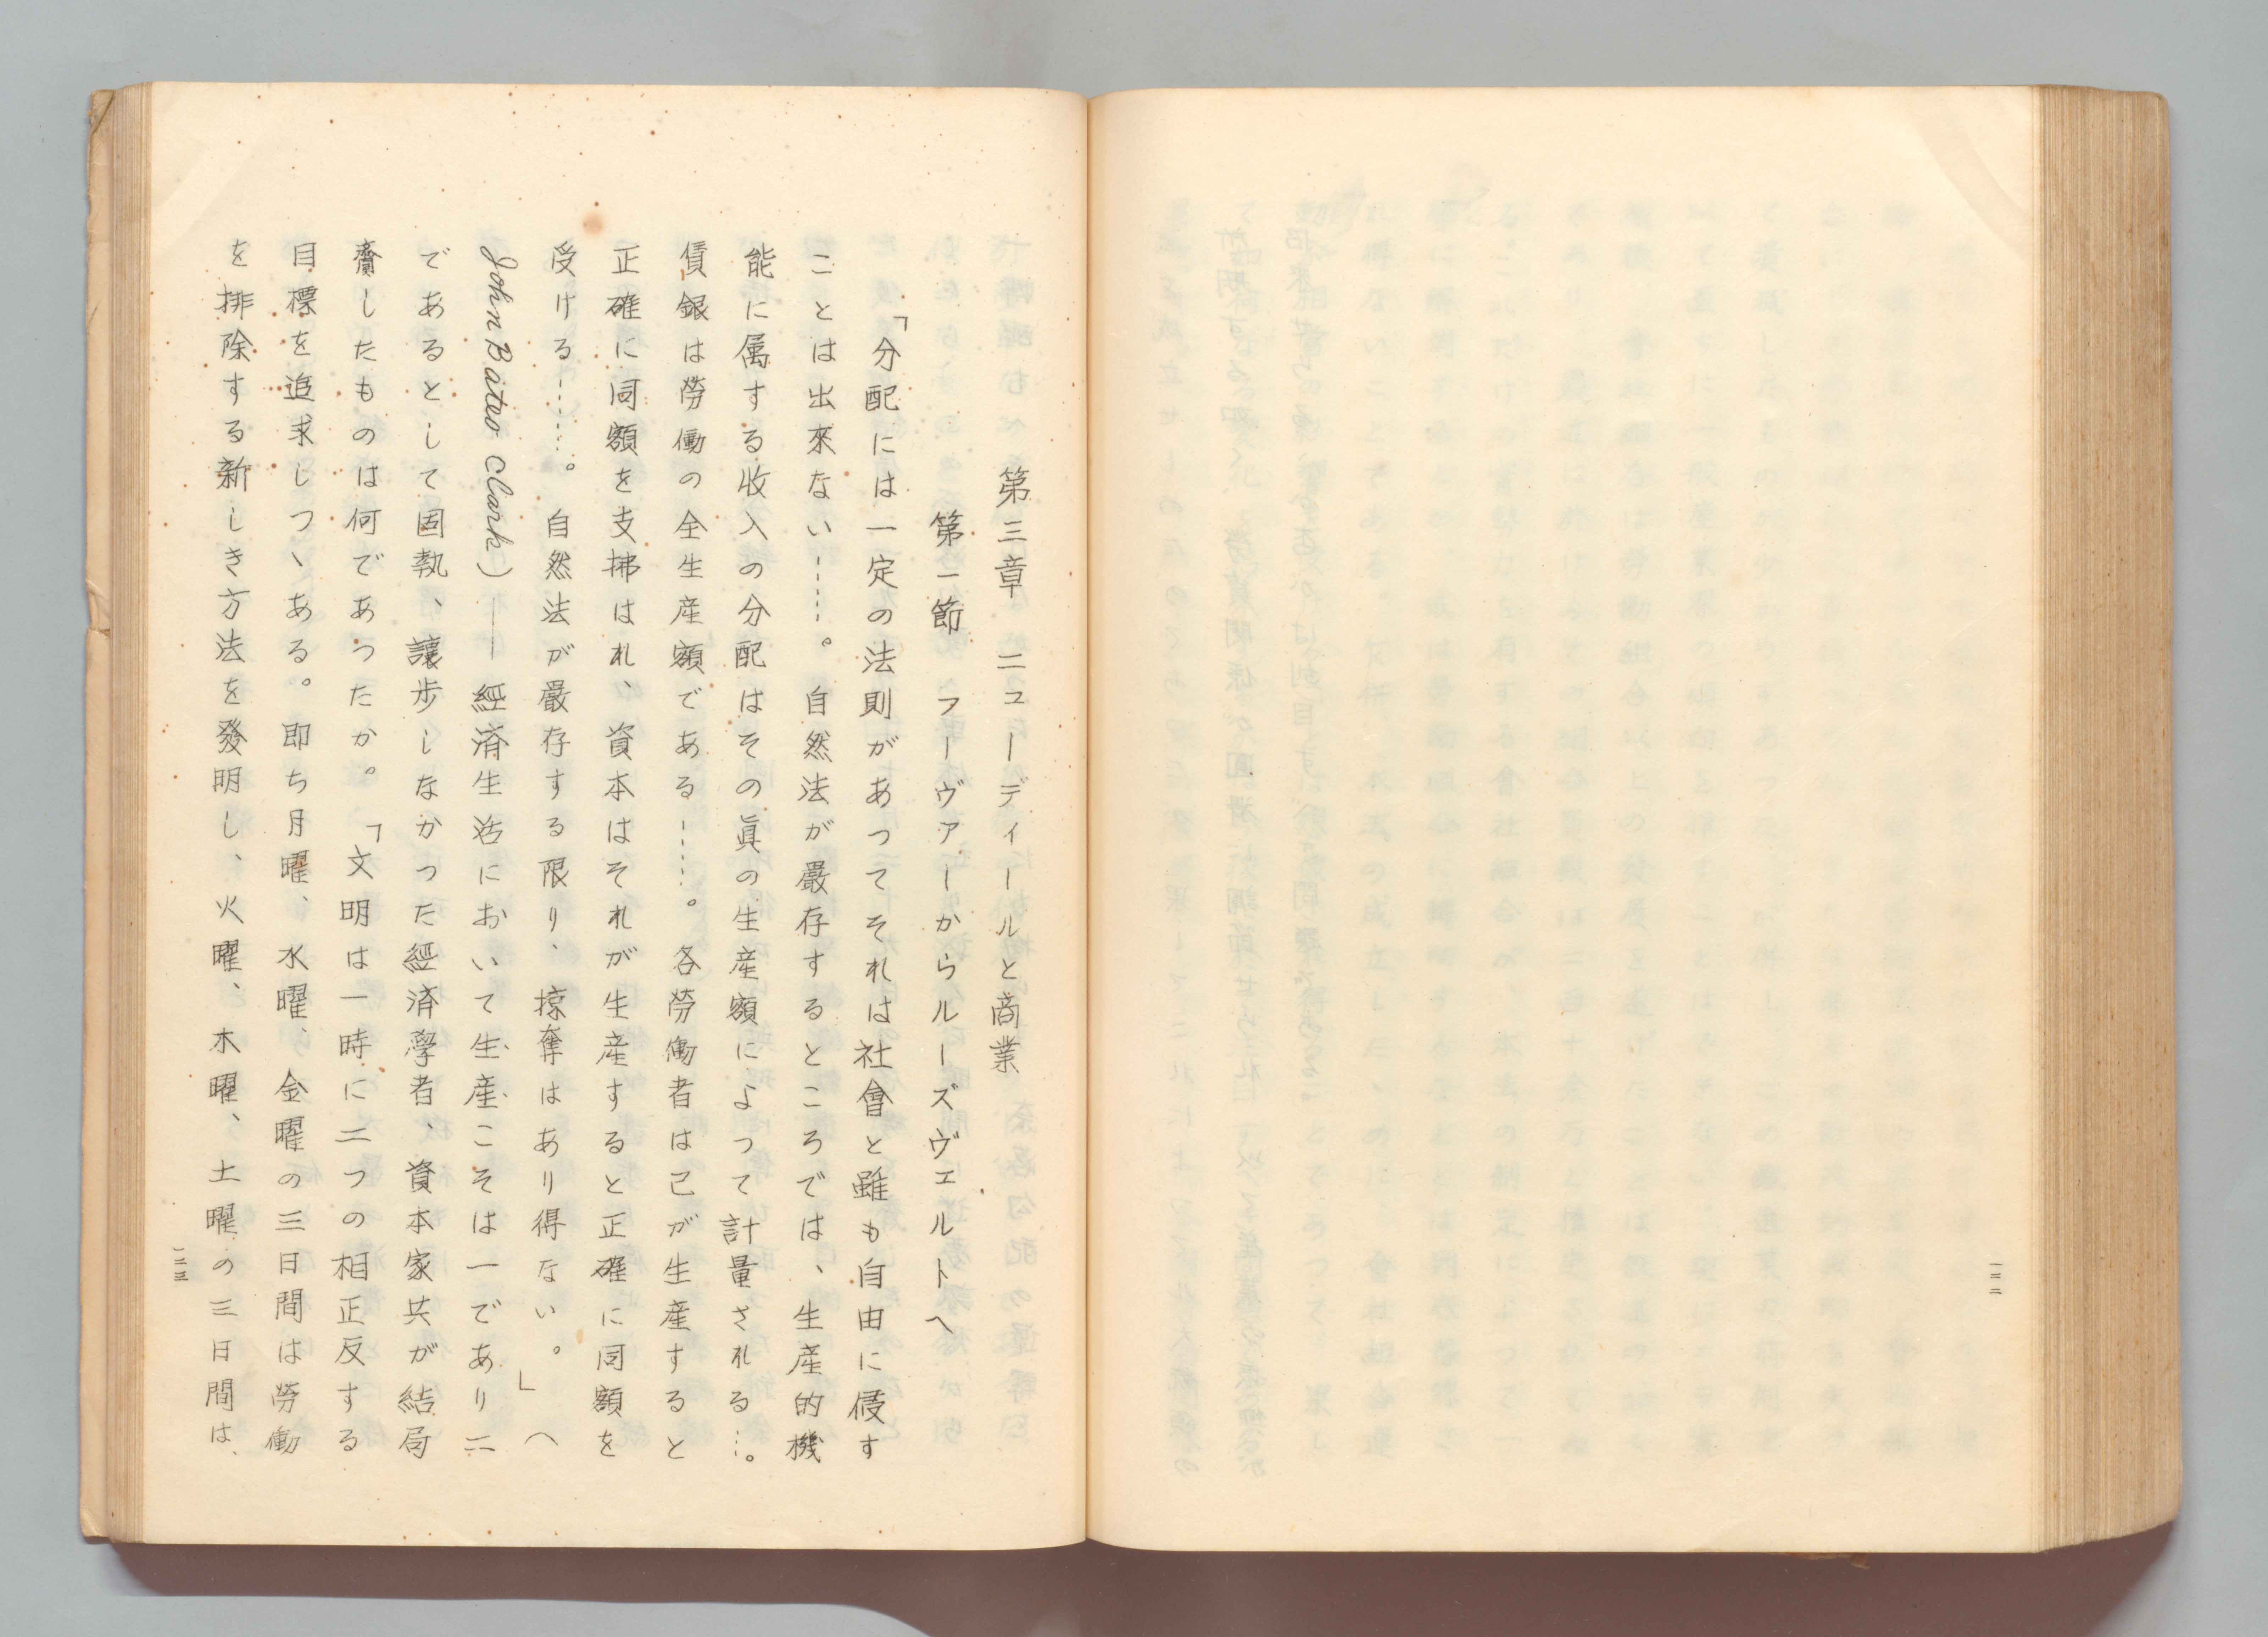 一二二
第三章　ニューディールと商業
第一節　フーヴァーからルーズヴェルトへ
「分配には一定の法則があってそれは社會と雖も自由に侵す
ことは出來ない……。自然法が嚴存するところでは、生産的機
能に属する收入の分配はその眞の生産額によって計量される…。
賃銀は勞働の全生産額である……。各勞働者は己が生産すると
正確に同額を支拂はれ、資本はそれが生産すると正確に同額を
受ける……。自然法が嚴存する限り、掠奪はあり得ない。」（
John Bates Clark）——經済生活において生産こそは一であり二
であるとして固執、讓歩しなかった經済學者、資本家共が結局
齎したものは何であつたか。「文明は一時に二つの相正反する
目標を追求しつゝある。即ち月曜、水曜、金曜の三日間は勞働
を排除する新しき方法を發明し、火曜、木曜、土曜の三日間は、
一二三